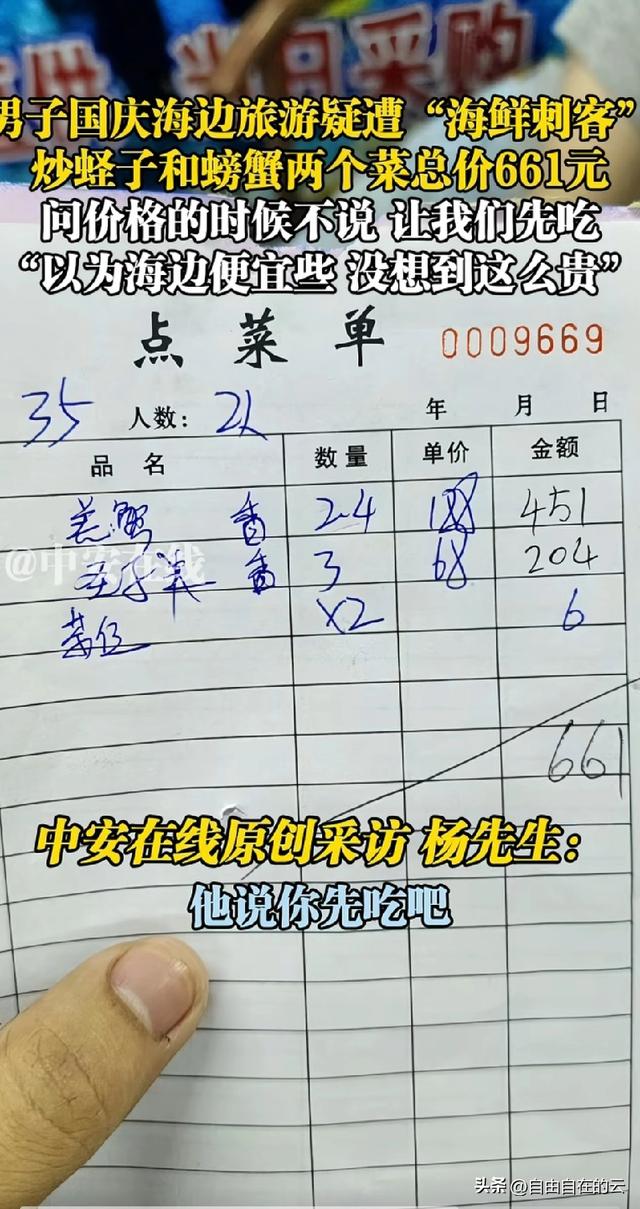 采购
男子国庆海边旅游疑遭“海鲜刺客”
炒蛏子和螃蟹两个菜总价661元
问价格的时候不说 让我们先吃
“以为海边便宜些 没想到这么贵”
点菜单 0009669
35 人数: 2人 年 月 日
品名 数量 单价 金额
羔蟹 香 2-4 188 451
@中安在线
香 3 68 204
茶位 X2 6
661
中安在线原创采访 杨先生：
他说你先吃吧
头条 @自由自在的云